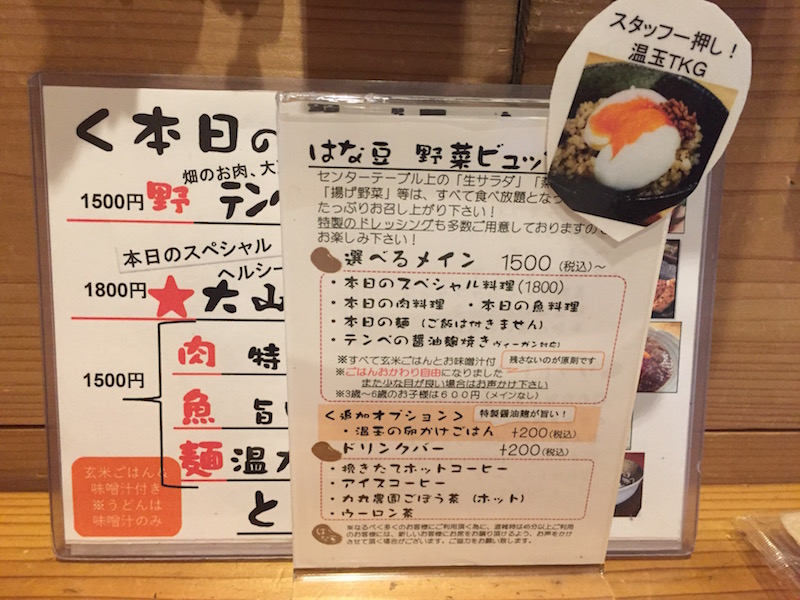 スタッフ一押し!
温玉TKG
く本日の
畑のお肉、大
1500円 野 テン
本日のスペシャル
ヘルシー
1800円 ★大山
肉 特
1500円
魚 旨い
麺 温か
と
玄米ごはんと
味噌汁付き
※うどんは
味噌汁のみ
はな豆 野菜ビュッ
センターテーブル上の「生サラダ」
「揚げ野菜」等は、すべて食べ放題とな
たっぷりお召し上がり下さい!
特製のドレッシングも多数ご用意しておりますので
お楽しみ下さい!
選べるメイン 1500(税込)~
・本日のスペシャル料理(1800)
・本日の肉料理 ・本日の魚料理
・本日の麺(ご飯は付きません)
・テンペの醤油麹焼きヴィーガン対応)
※すべて玄米ごはんとお味噌汁付 残さないのが原則です
※ごはんおかわり自由になりました
また少な目が良い場合はお声かけ下さい
※3歳~6歳のお子様は600円(メインなし)
<追加オプション> 特製醤油麹が旨い!
・温玉の卵かけごはん +200(税込)
ドリンクバー +200(税込)
・挽きたてホットコーヒー
・アイスコーヒー
・力丸農園ごぼう茶(ホット)
・ウーロン茶
※なるべく多くのお客様にご利用頂く為に、混雑時は45分以上ご利用
のお客様には、新しいお客様にお席をお譲り頂けるよう、お声をかけ
させて頂く場合がございます。ご協力をお願い致します。